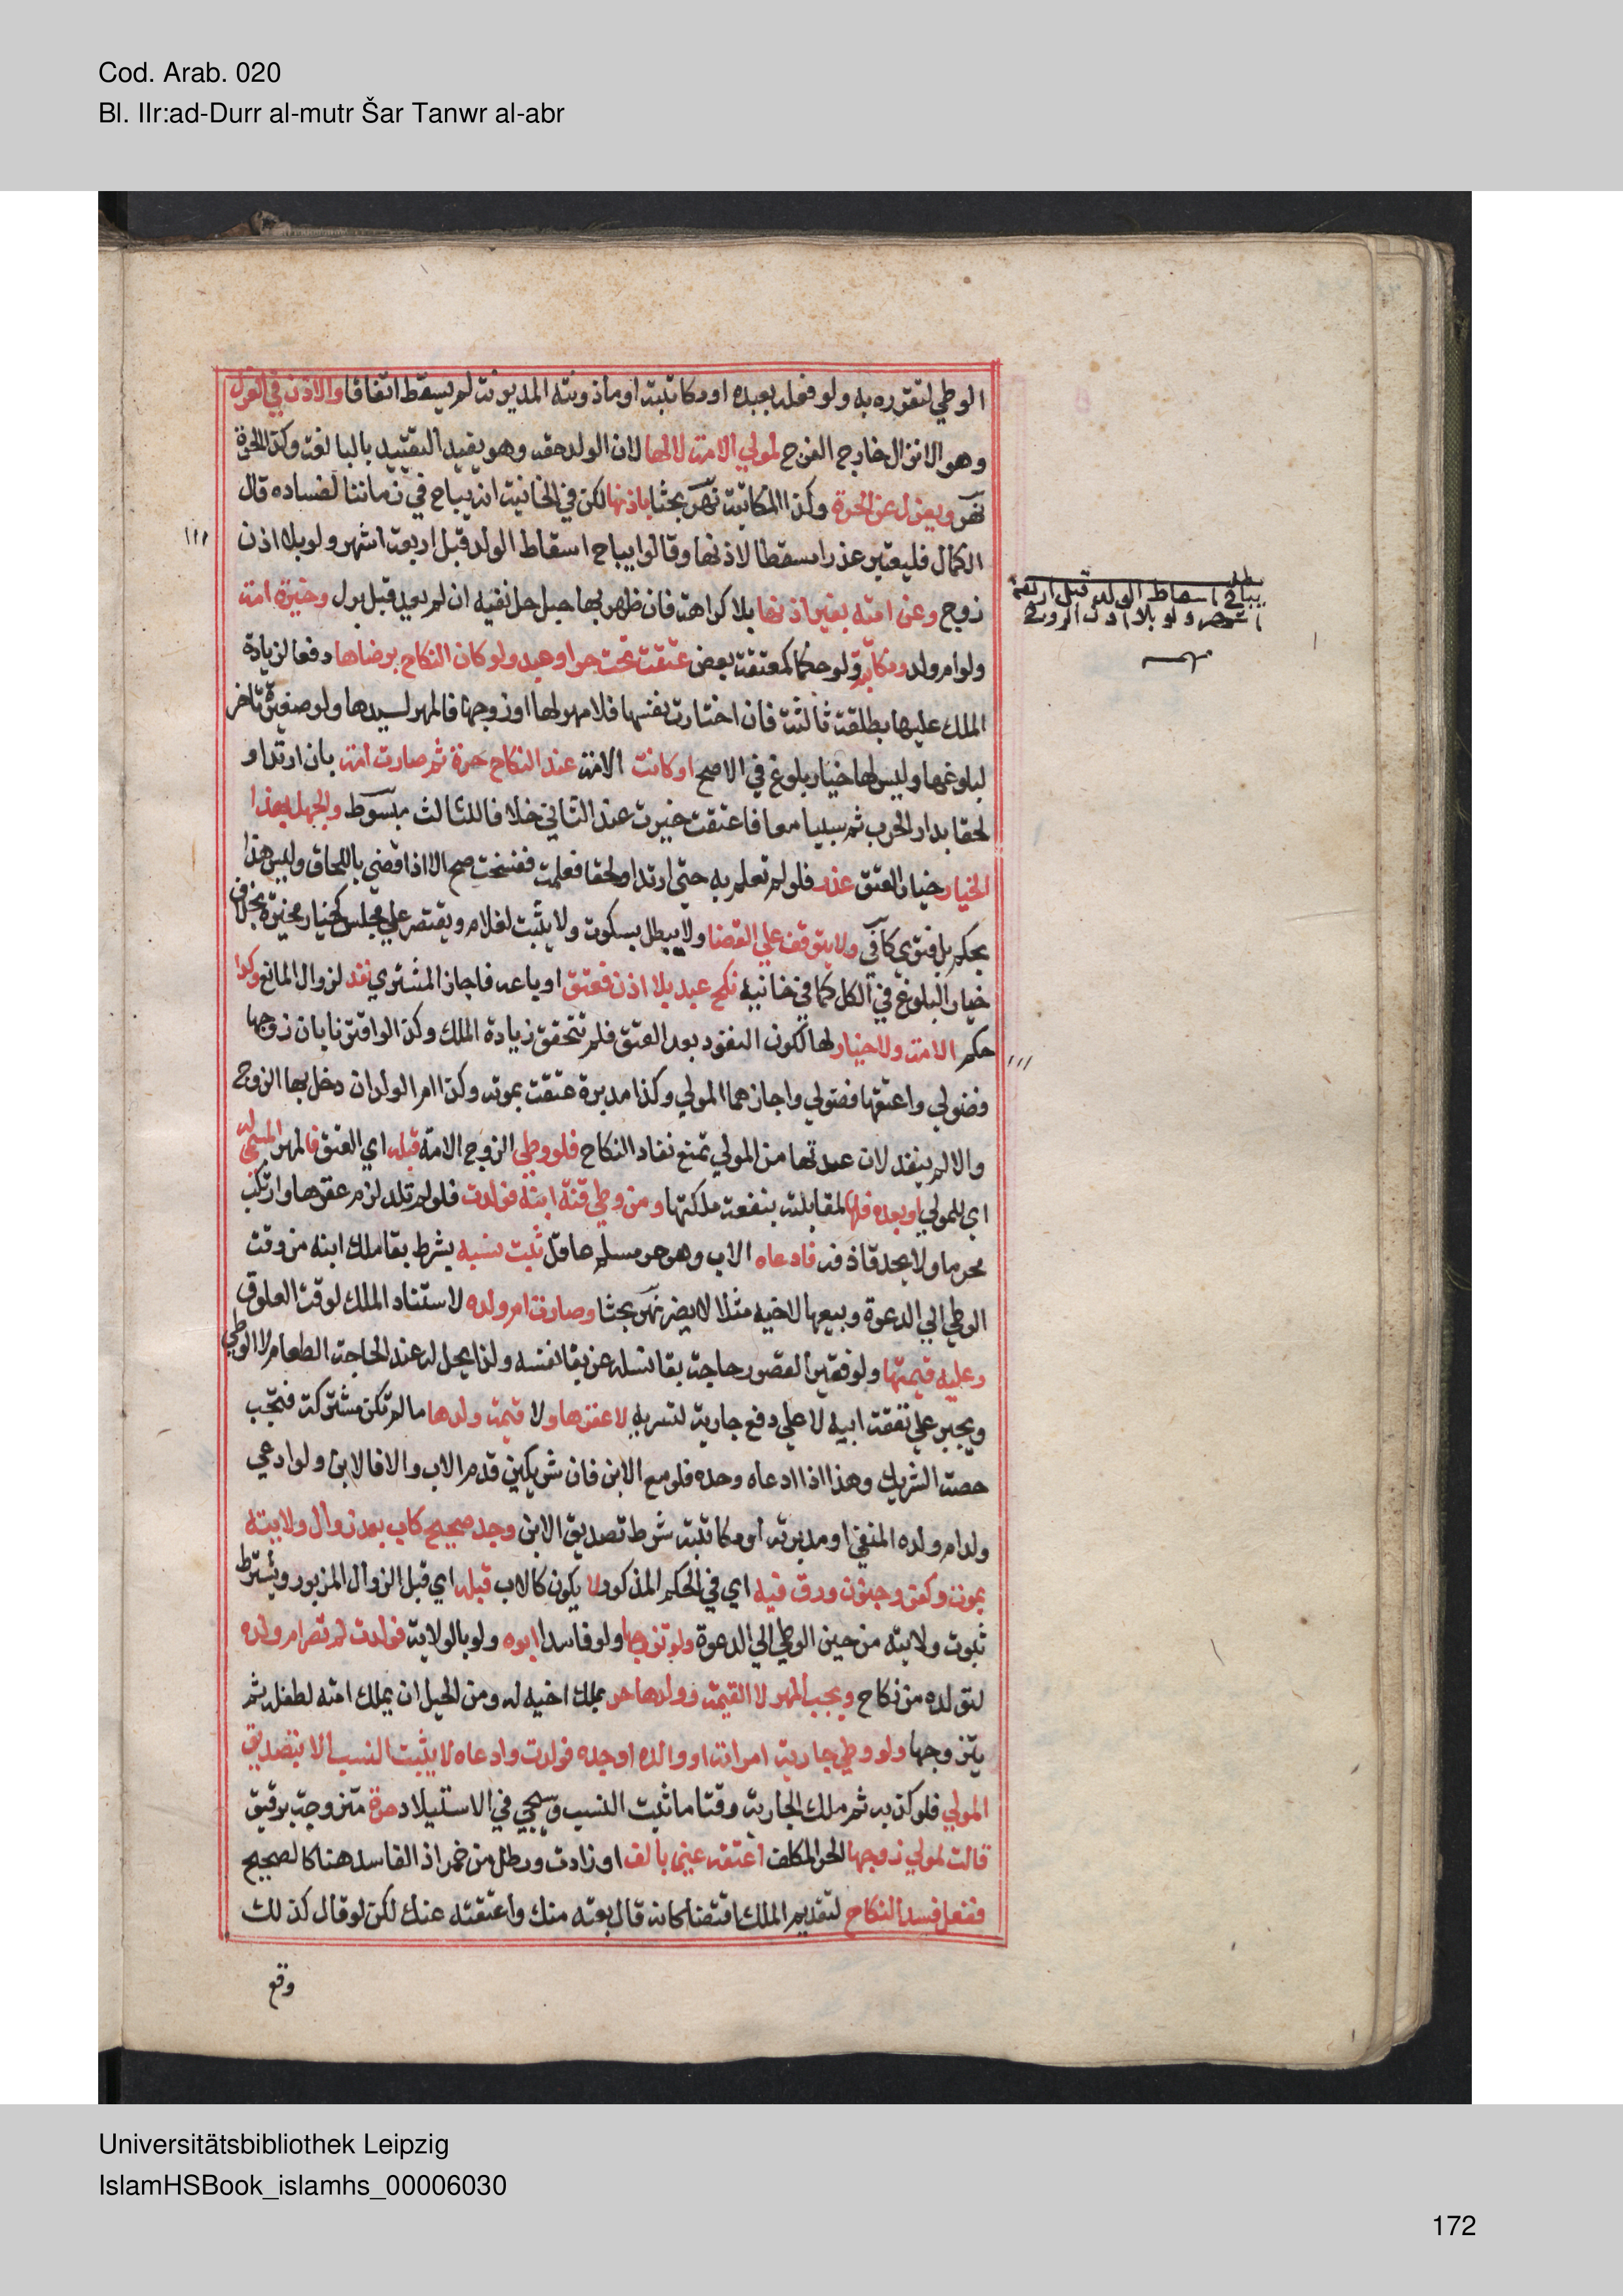 Cod. Arab. 020
Bl. IIr:ad-Durr al-mutr Šar Tanwr al-abr
الوطي لتقرره به ولو فعله بعبده او مكاتبته او ماذونته المديونة لم يسقط اتفاقا والاذن في العزل
وهو الانزال خارج الفرج لمولي الامة لا لها لان الولد حقه وهو يفيد التقييد بالبالغة وكذا الحرة
نهر ويعزل عن الحرة وكذا المكاتبة نهر بحثا باذنها لكن في الخانية انه يباح في زماننا لفساده قال
الكمال فليعتبر عذرا مسقطا لاذنها وقالوا يباح اسقاط الولد قبل اربعة اشهر ولو بلا اذن
زوج وعن امته بغير اذنها بلا كراهة فان ظهر بها حبل حل نفيه ان لم يعد قبل بول وخيرت امة
ولو ام ولد ومكاتبة ولو حكما كمعتقة بعض عتقت تحت حر او عبد ولو كان النكاح برضاها دفعا لزيادة
الملك عليها بطلقة ثالثة فان اختارت نفسها فلا مهر لها او زوجها فالمهر لسيدها ولو صغيرة تاخر
لبلوغها وليس لها خيار بلوغ في الاصح او كانت الامة عند النكاح حرة ثم صارت امة بان ارتدا و
لحقا بدار الحرب ثم سبيا معا فاعتقت خيرت عند الثاني خلافا للثالث مبسوط والجهل بهذا
الخيار خيار العتق عذر فلو لم تعلم به حتى ارتدا ولحقا فعلمت ففسخت صح الا اذا قضي باللحاق وليس هذا
بحكم بل فتوى كافي ولا يتوقف علي القضا ولا يبطل بسكوت ولا يثبت لغلام ويقتصر علي مجلس كخيار مخيرة بخلاف
خيار البلوغ في الكل كما في خانية نكح عبد بلا اذن فعتق او باعه فاجاز المشتري نفذ لزوال المانع وكذا
حكم الامة ولا خيار لها لكون النفوذ بعد العتق فلم تتحقق زيادة الملك وكذا لو اقترنا بان زوجها
فضولي واعتقها فضولي واجازهما المولي وكذا مدبرة عتقت بموته وكذا ام الولد ان دخل بها الزوج
والا لم ينفذ لان عدتها من المولي تمنع نفاذ النكاح فلو وطي الزوج الامة قبله اي العتق فالمهر المسمى له
اي للمولي او بعده فلها لمقابلته بنفعة ملكتها ومن وطي قنة ابنه فولدت فلو لم تلد لزم عقرها وارتكب
محرما ولا يحد قاذفه فادعاه الاب وهو حر مسلم عاقل ثبت نسبه بشرط بقا ملك ابنه من وقت
الوطي الي الدعوة وبيعها لاخيه مثلا لا يضر نهر بحثا وصارت ام ولده لاستناد الملك لوقت العلوق
وعليه قيمتها ولو فقيرا لقصور حاجة بقا نسله عن بقا نفسه ولذا يحل له عند الحاجة الطعام لا الوطي
ويجبر علي نفقة ابيه لا علي دفع جارية لتسريه لا عقرها ولا قيمة ولدها ما لم تكن مشتركة فتجب
حصة الشريك وهذا اذا ادعاه وحده فلو مع الابن فان شريكين قدم الاب والا فالابن ولو ادعي
ولد ام ولده المنفي او مدبرته او مكاتبته شرط تصديق الابن وجد صحيح كاب بعد زوال ولايته
بموت وكفر وجنون ورق فيه اي في الحكم المذكور لا يكون كالاب قبله اي قبل الزوال المزبور ويشترط
ثبوت ولايته من حين الوطي الي الدعوة ولو تزوجها ولو فاسدا ابوه ولو بالولاية فولدت لم تصر ام ولده
لتولده من نكاح ويجب المهر لا القيمة وولدها حر بملك اخيه له ومن الحيل ان يملك امته لطفله ثم
يتزوجها ولو وطي جارية امراته او والده او جده فولدت وادعاه لا يثبت النسب الا بتصديق
المولي فلو كذبه ثم ملك الجارية وقتا ما ثبت النسب وسيجي في الاستيلاد حرة متزوجة برقيق
قالت لمولي زوجها الحر المكلف اعتقه عني بالف او زادت ورطل من خمر اذ الفاسد هنا كالصحيح
ففعل فسد النكاح لتقديم الملك اقتضا كانه قال بعته منك واعتقته عنك لكن لو قال كذلك
وقع
مطلب
يباح اسقاط الولد قبل اربعة
اشهر ولو بلا اذن الزوج
Universitätsbibliothek Leipzig
IslamHSBook_islamhs_00006030
172